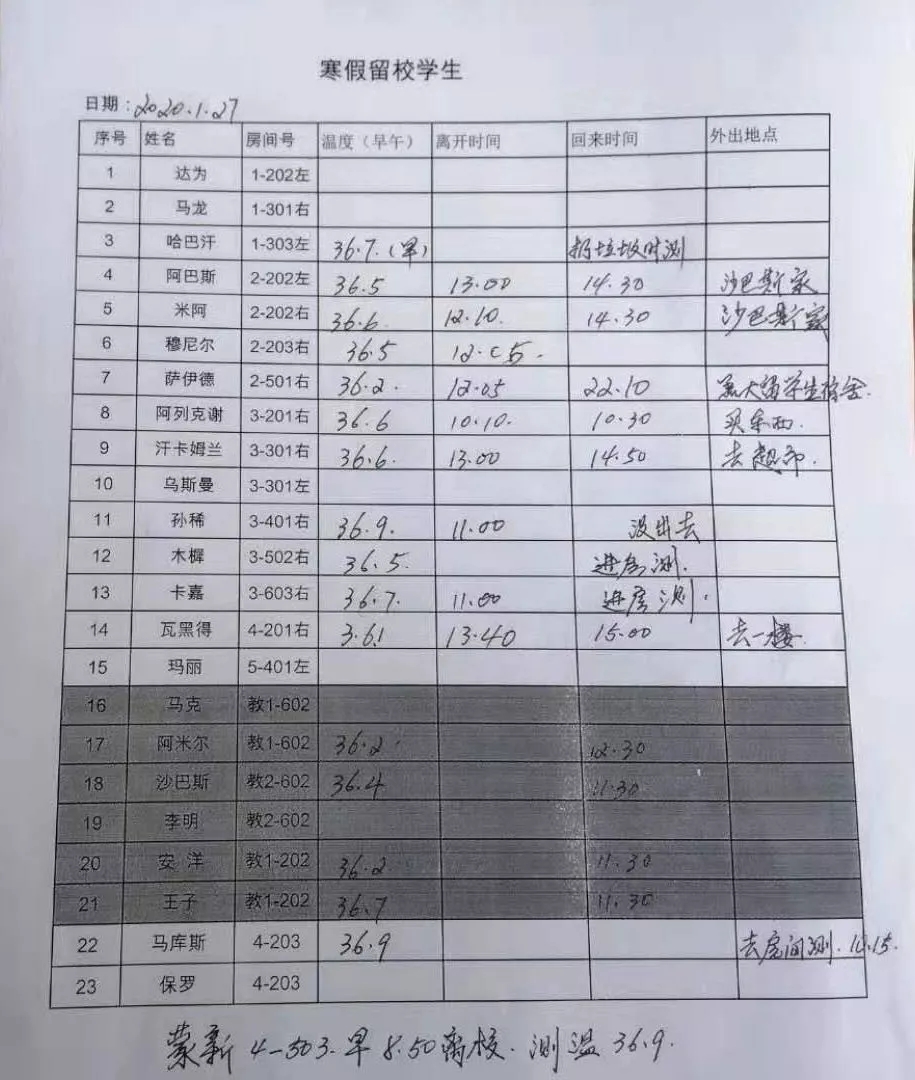 寒假留校学生
日期：2020.1.27
序号 姓名 房间号 温度（早午） 离开时间 回来时间 外出地点
1 达为 1-202左
2 马龙 1-301右
3 哈巴汗 1-303左 36.7.(早) 扔垃圾时测
4 阿巴斯 2-202左 36.5 13.00 14.30 沙巴斯家
5 米阿 2-202右 36.6 12.10. 14.30 沙巴斯家
6 穆尼尔 2-203右 36.5 12.05.
7 萨伊德 2-501右 36.2. 12.05 22.10 黑大留学生宿舍.
8 阿列克谢 3-201右 36.6 10.10. 10.30 买东西.
9 汗卡姆兰 3-301右 36.6. 13.00 14.50 去超市.
10 乌斯曼 3-301左
11 孙稀 3-401右 36.9. 11.00 没出去
12 木樨 3-502右 36.5. 进房测.
13 卡嘉 3-603右 36.7. 11.00 进房测.
14 瓦黑得 4-201右 3.61 13.40 15.00 去一楼.
15 玛丽 5-401左
16 马克 教1-602
17 阿米尔 教1-602 36.2. 12.30
18 沙巴斯 教2-602 36.4 11.30
19 李明 教2-602
20 安 洋 教1-202 36.2 11.30
21 王子 教1-202 36.7 11.30
22 马库斯 4-203 36.9 去房间测.
23 保罗 4-203
蒙新 4-503.早8.50离校.测温36.9.